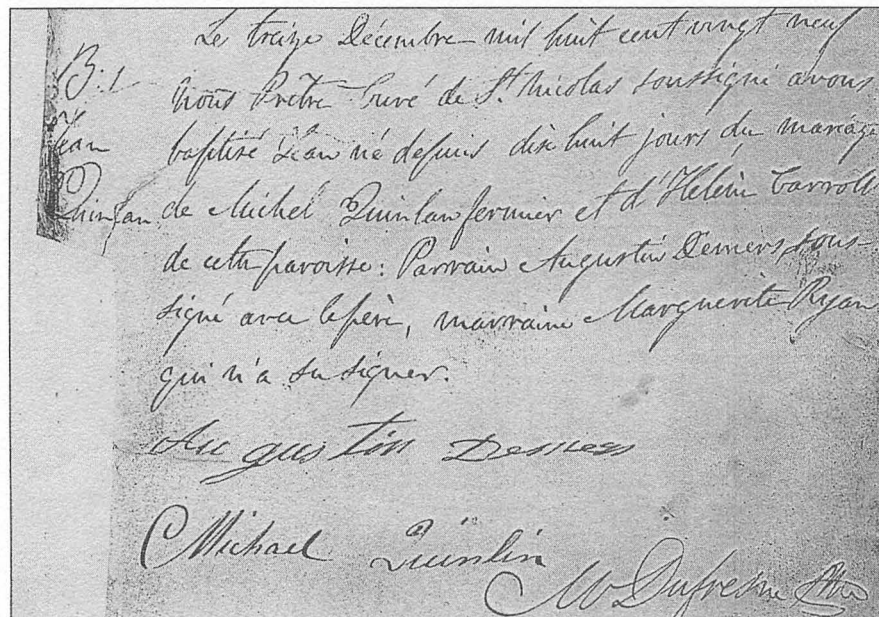 Le treize Décembre mil huit cent vingt neuf
B.1
Nous Prêtre Curé de St. Nicolas soussigné avons
Jean
baptisé Jean né depuis dix huit jours du mariage
Quinlan
de Michel Quinlan fermier et d'Helén Carroll
de cette paroisse: Parrain Augustin Demers, sous-
signé avec le père, marraine Marguerite Ryan
qui n'a su signer.
Augustin Demers
Michael Quinlin
Dufresne Ptre